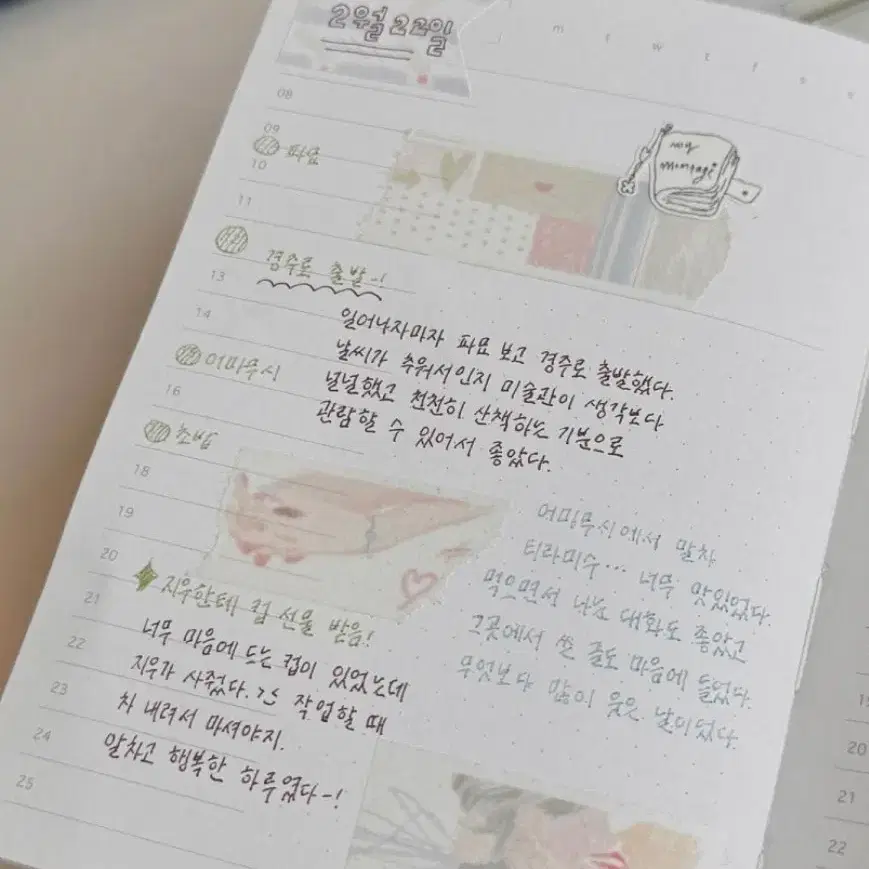 2월 22일
m t w t f s s
08
09
파묘
10
11
경주로 출발~!
13
14
어마무시
16
초밥
18
19
20
21
22
23
24
25
my
일어나자마자 파묘 보고 경주로 출발했다.
날씨가 추워서인지 미술관이 생각보다
널널했고 천천히 산책하는 기분으로
관람할 수 있어서 좋았다.
어마무시에서 말차
티라미수... 너무 맛있었다.
먹으면서 나눈 대화도 좋았고
그곳에서 쓴 줄도 마음에 들었다.
무엇보다 많이 웃은 날이었다.
지우한테 컵 선물 받음!
너무 마음에 드는 컵이 있었는데
지우가 사줬다. ㅋㅋ 작업할 때
차 내려서 마셔야지.
알차고 행복한 하루였다~!
19
20
21
22